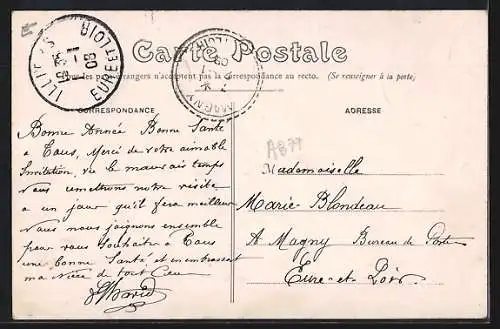 Carte Postale
pays étrangers n'acceptent pas la correspondance au recto. (Se renseigner à la poste)
CORRESPONDANCE
ADRESSE
ILLI
EURE ET LOIR
08
MAGNY
A 877
Bonne Année Bonne Santé
a Tous, Mercé de votre aimable
Invitation, vu le mauvais temps
Nous remettrons notre visite
a un jour qu'il fera meilleur
Nous nous joignons ensemble
pour vous souhaiter a Tous
une Bonne Santé et en embrassant
ma Nièce de tout Cœur
David
Mademoiselle
Marie Blondeau
A Magny Bureau de Poste
Eure-et-Loir